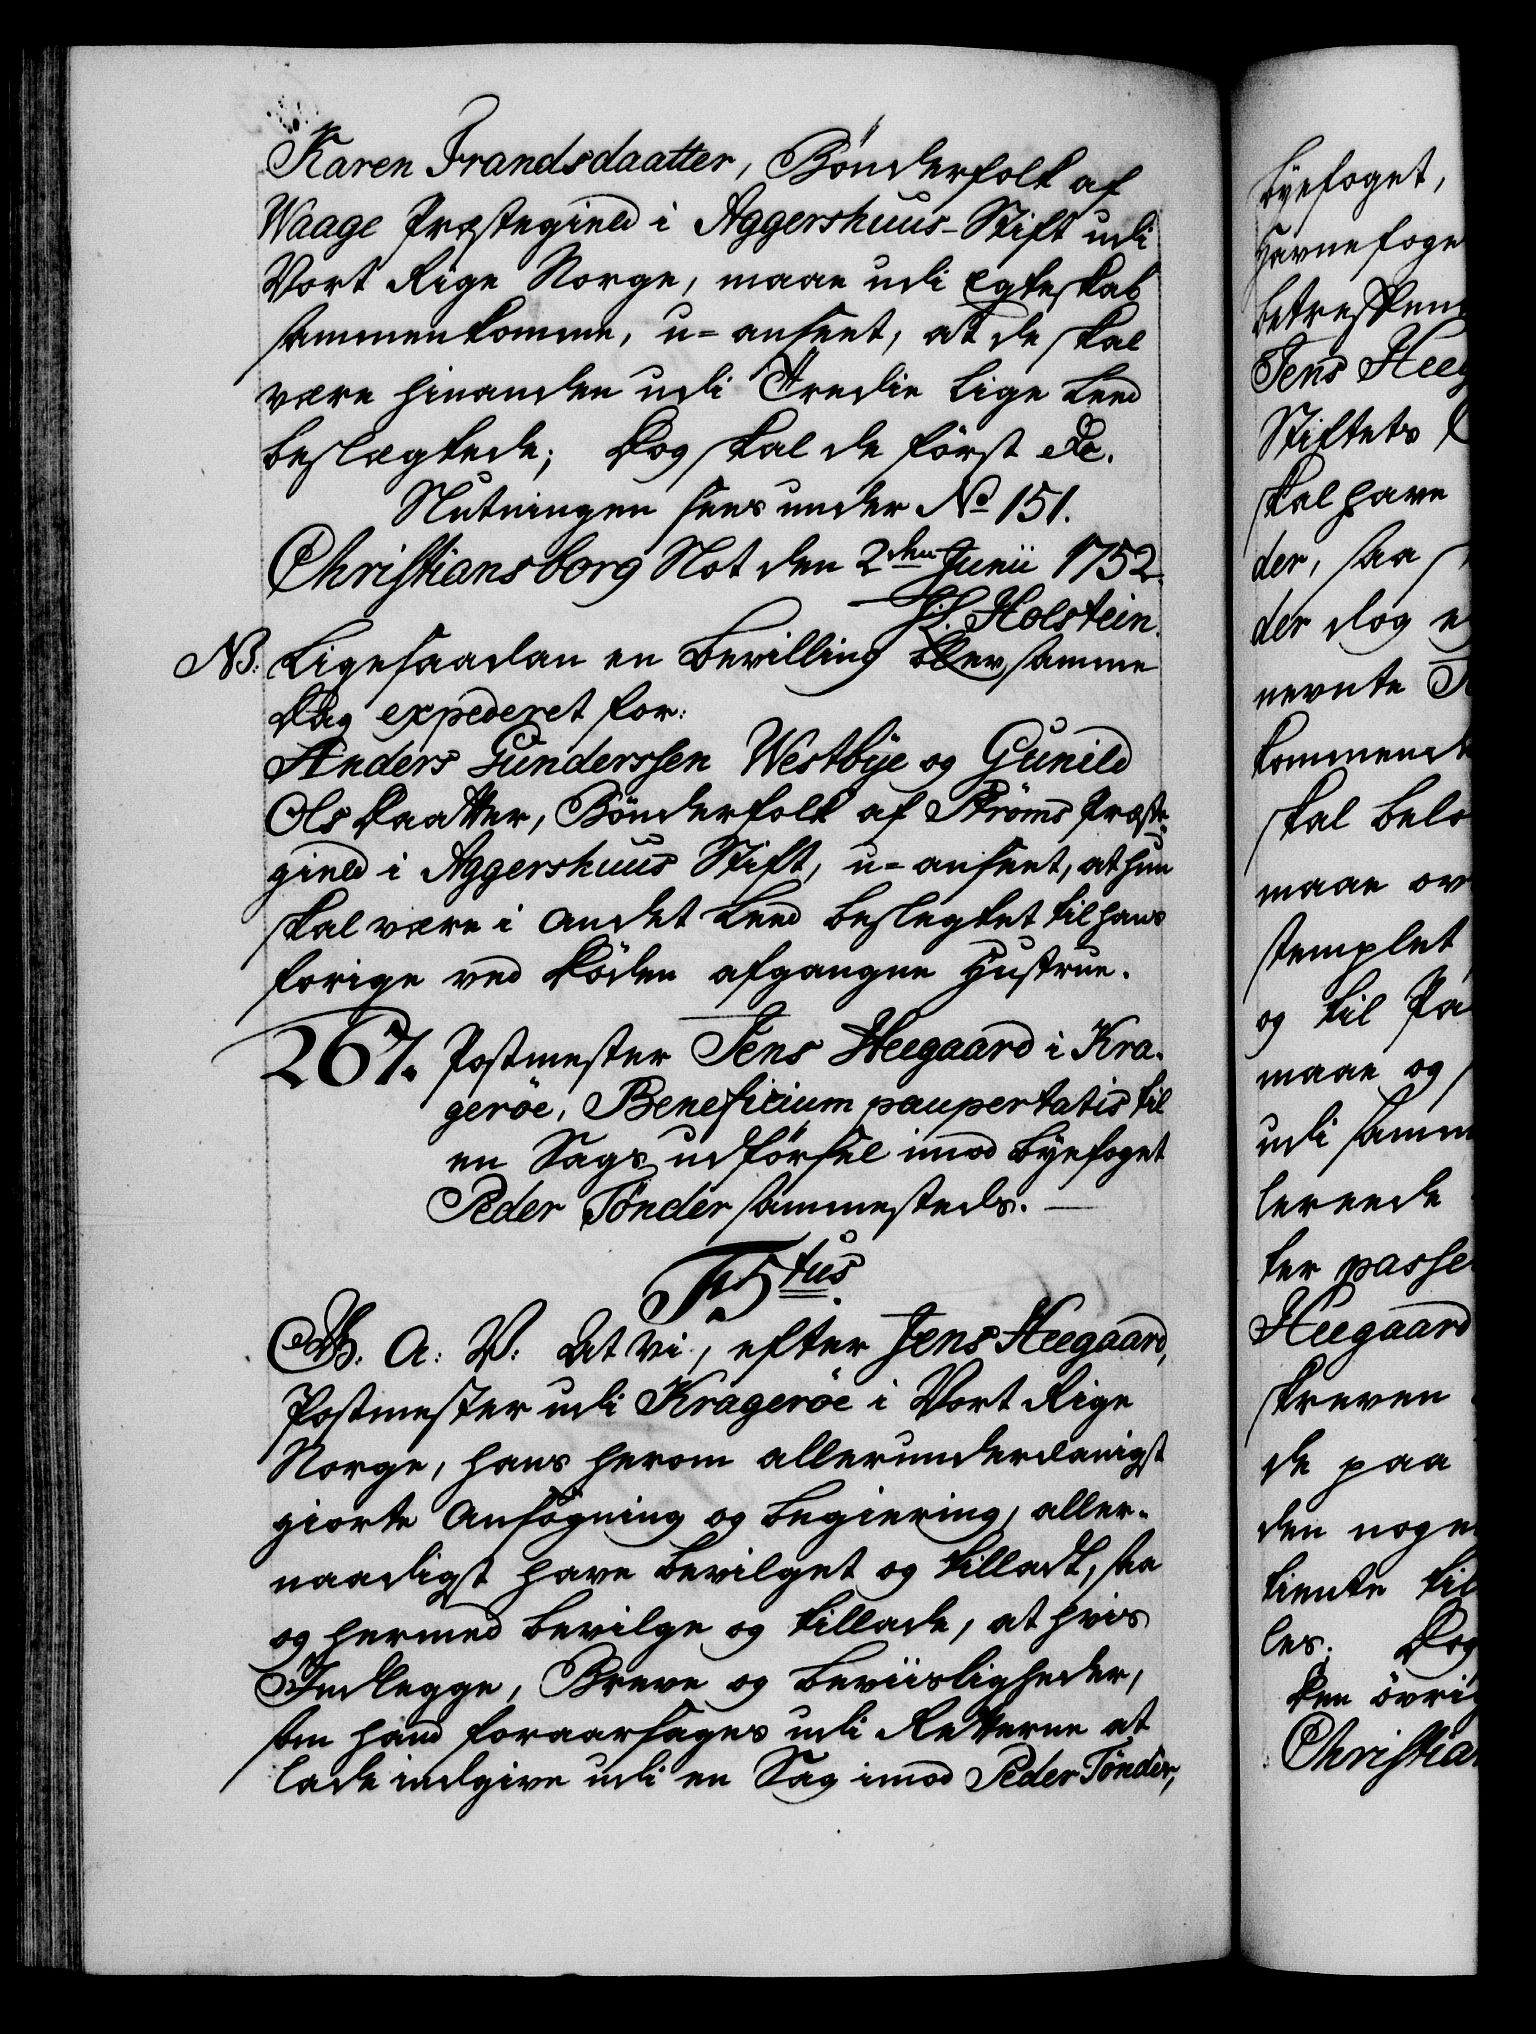 Karen Frandsdaatter, Bönderfolk af
Waage Præstegield i Aggershuus-Stift udi
Vort Rige Norge, maae udi Egteskab
sammenkomme, u-anseet, at de skal
være hinanden udi Tredie Lige Leed
beslægtede; Dog skal de först &c.
Slutningen sees under No 151.
Christiansborg Slot den 2den Junii 1752.
J. L. Holstein.
NB: Ligesaadan en Bevilling blev samme
Dag expederet for:
Anders Gunderssen Westbÿe og Gunild
Olsdaatter, Bönderfolk af Ströms Præste-
gield i Aggershuus Stift, u-anseet, at hun
skal være i Andet Leed beslegtet til hans
forige ved Döden afgangne Hustrue.
267. Postmester Jens Heegaard i Kra-
geröe, Beneficium paupertatis til
en Sags udförsel imod Byefoget
Peder Tönder sammesteds.
F. 5tus
G. A. V. At Vi, efter Jens Heegaard,
Postmester udi Krageröe i Vort Rige
Norge, hans herom allerunderdanigst
giorte Ansögning og Begiering, aller-
naadigst have bevilget og tilladt, saa
og hermed bevilge og tillade, at hvis
Indlegge, Breve og Beviisligheder,
som hand foraarsages udi Retterne at
lade indgive udi en Sag imod Peder Tönder,
Byefoget,
Havnefoge
betreffen
Jens Heeg
Stiftets
skal have
der, saa
der dog e
nevnte
kommend
skal belo
maae ov
stemplet
og til Pa
maae og
udi samm
lerede
ter passe
Heegaard
skreven
de paa
den noge
tiente til
les. Dog
Den övrig
Christian